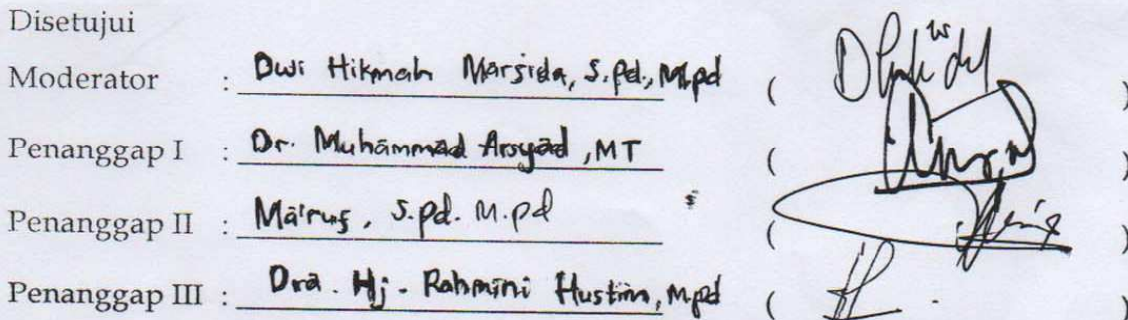 Disetujui
Moderator : Dwi Hikmah Marsida, S.Pd., M.pd ( )
Penanggap I : Dr. Muhammad Arsyad, MT ( )
Penanggap II : Mairus, S.pd. M.pd ( )
Penanggap III : Dra. Hj. Rahmini Hustim, M.pd ( )